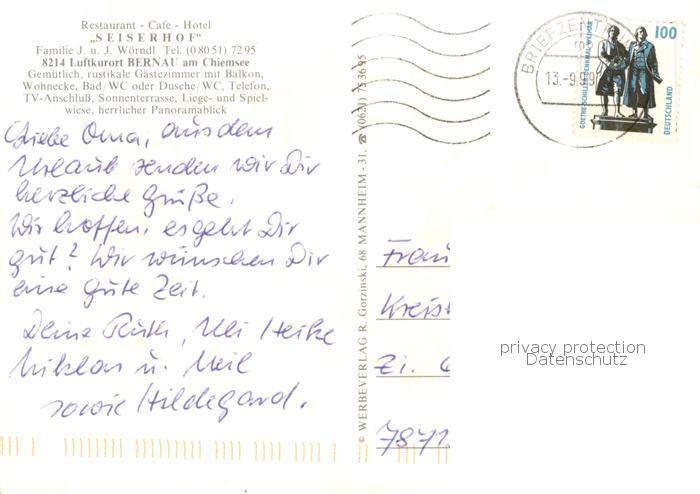 Restaurant - Cafe - Hotel
„SEISERHOF"
Familie J. u. J. Wörndl Tel. (0 80 51) 72 95
8214 Luftkurort BERNAU am Chiemsee
Gemütlich, rustikale Gästezimmer mit Balkon,
Wohnecke, Bad/WC oder Dusche/WC, Telefon,
TV-Anschluß, Sonnenterrasse, Liege- und Spiel-
wiese, herrlicher Panoramablick
Liebe Oma, aus dem
Urlaub senden wir Dir
herzliche Grüße.
Wir hoffen, es geht Dir
gut? Wir wünschen Dir
eine gute Zeit.
Deine Ruth, Uli Heike
Niklas u. Neil
sowie Hildegard.
© WERBEVERLAG R. Gorzinski, 68 MANNHEIM - 31, ☎ (0621) 75 36 95
BRIEFZENTRUM
13.-9.99
GOETHE-SCHILLER-DENKMAL WEIMAR
100
DEUTSCHLAND
Frau
Kreis
Zi.
7871
privacy protection
Datenschutz